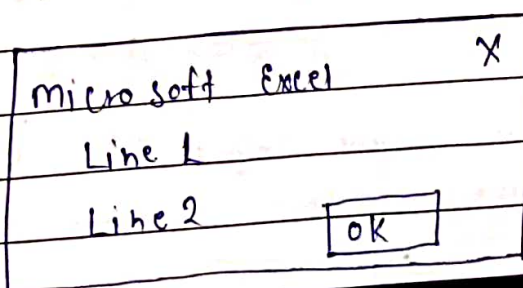 Microsoft Excel X
Line 1
Line 2
OK